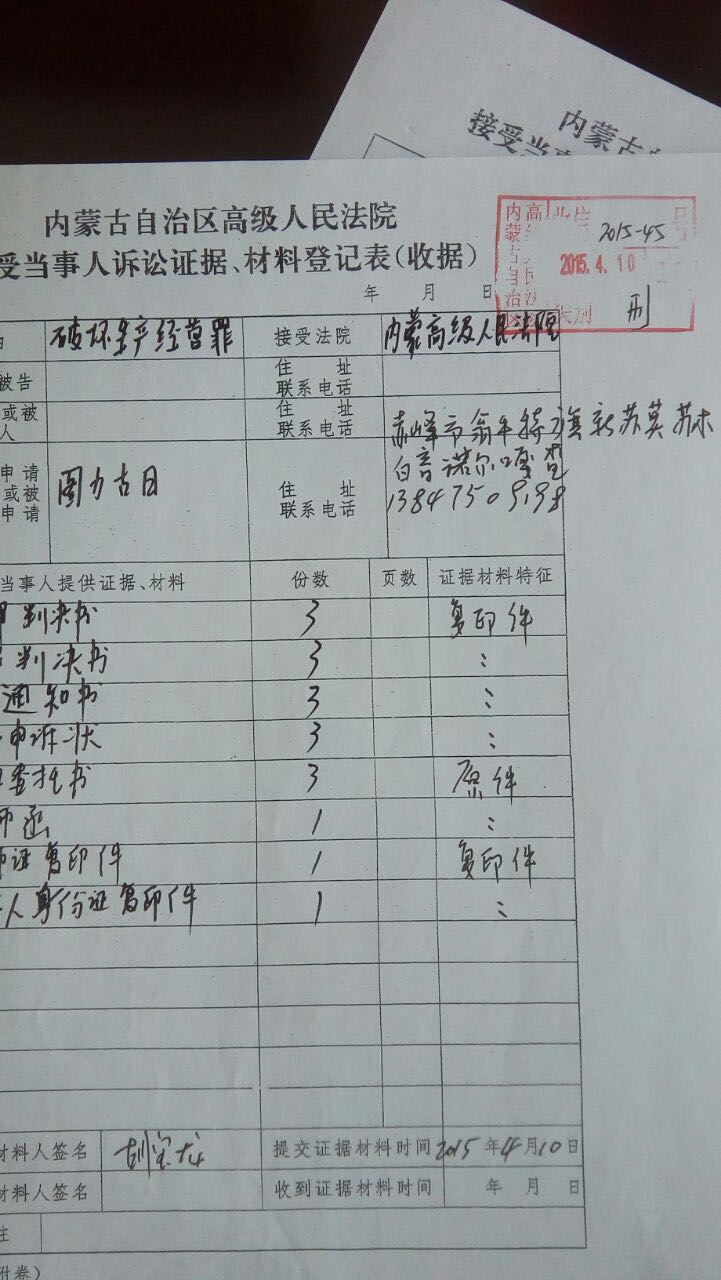 内蒙古
接受当事
内蒙古自治区高级人民法院
受当事人诉讼证据、材料登记表(收据)
年 月 日
内蒙古自治区
高
2015-45 号
2015.4.10
类别 刑
由 破坏生产经营罪 接受法院 内蒙高级人民法院
被告 住址
联系电话
或被
人 住址
联系电话
申请
或被
申请 图力古日 住址
联系电话 赤峰市翁牛特旗新苏莫苏木
白音诺尔嘎查
13847509198
当事人提供证据、材料 份数 页数 证据材料特征
判决书 3 复印件
判决书 3 :
通知书 3 :
申诉状 3 :
委托书 3 原件
师函 1 :
师证复印件 1 复印件
人身份证复印件 1 :
材料人签名 胡宝龙 提交证据材料时间 2015年4月10日
材料人签名 收到证据材料时间 年 月 日
注
附卷)